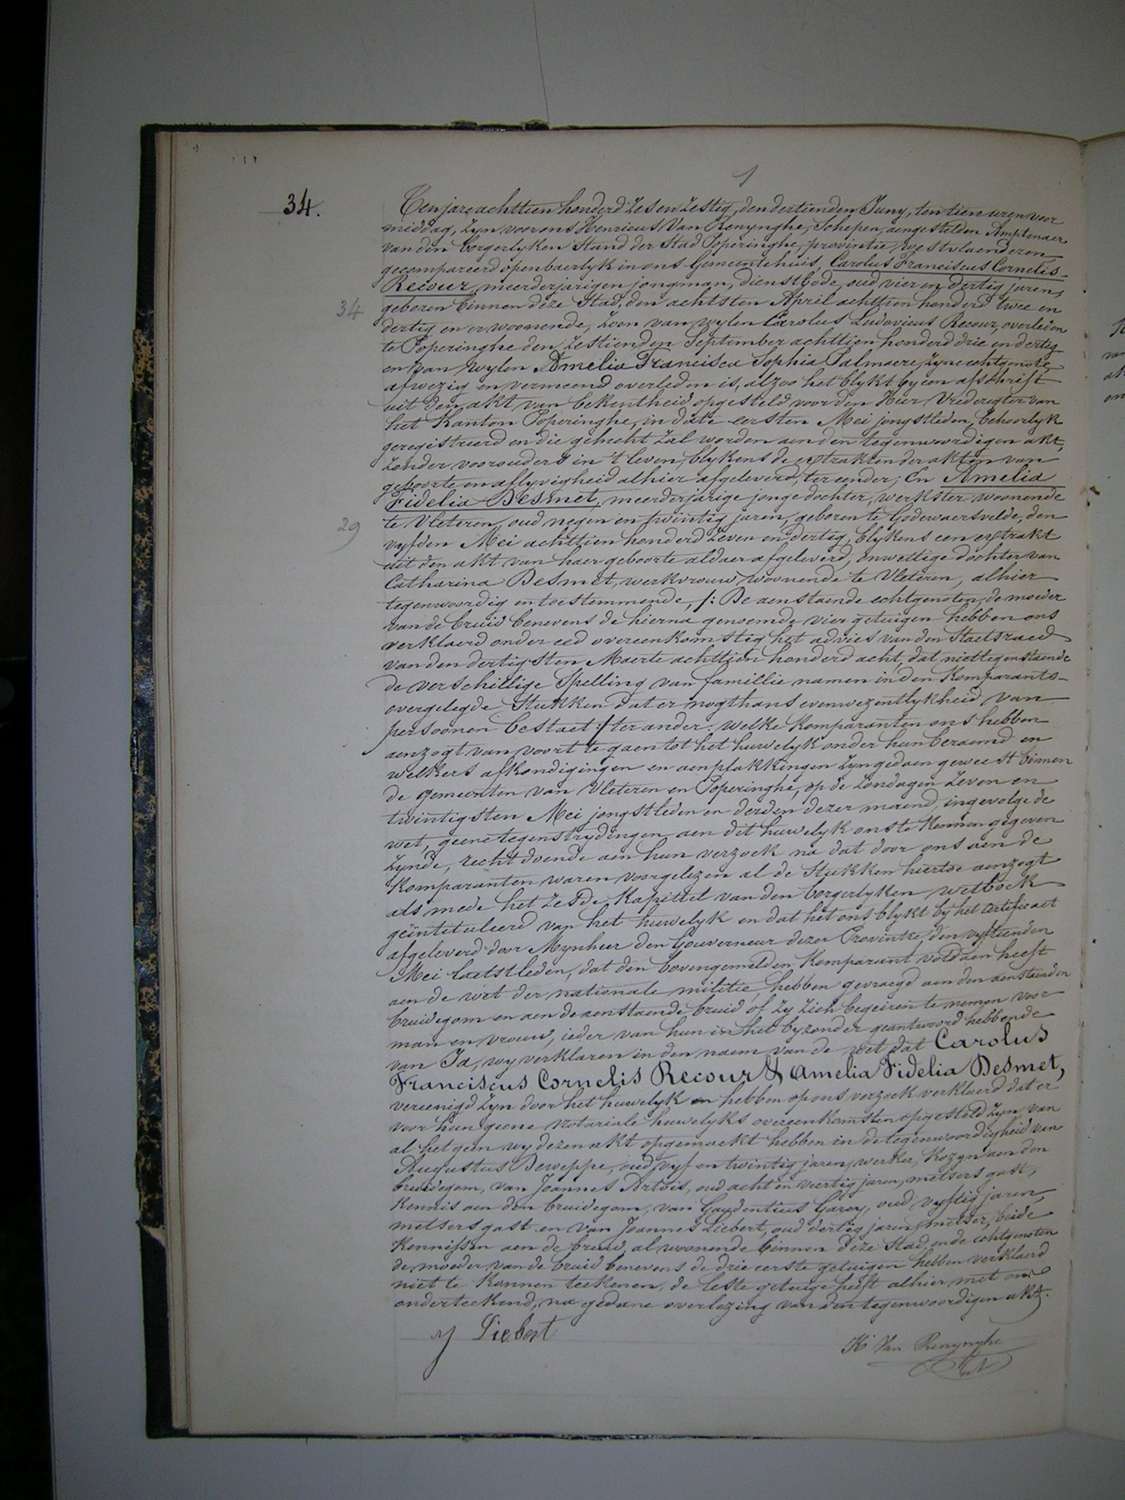 1
34.
Ten jare achttien honderd zes en zestig, den dertienden Juny, ten tien uren voor
middag, zyn voor ons Henricus Van Renynghe, Schepen, aengestelden Amptenaer
van den borgerlyken Stand der Stad Poperinghe, provintie Westvlaenderen
gecompareerd openbaerlyk in ons Gemeentehuis, Carolus Franciscus Cornelis
Recour, meerderjarigen jongman, dienstbode, oud vier en dertig jaren,
34
geboren binnen deze Stad, den achtsten April achttien honderd twee en
dertig en er woonende, zoon van wylen Carolus Ludovicus Recour, overleden
te Poperinghe den zestienden September achttien honderd drie en dertig
en van wylen Amelia Francisca Sophia Palmaere, zyne echtgenote,
afwezig en vermeend overleden is, alzoo het blykt by een afschrift
uit den akt van bekentheid opgesteld voor den Heer Vrederegter van
het Kanton Poperinghe, in date eersten Mei jongstleden, behoorlyk
geregistreerd en die gehecht zal worden aen den tegenwoordigen akt,
zonder voorouders in 't leven, blykens de extrakten der akten van
geboorte en aflyvigheid alhier afgeleverd, ter eender; En Amelia
Fidelia Desmet, meerderjarige jonge dochter, werkster woonende
29
te Vleteren, oud negen en twintig jaren, geboren te Godewaersvelde, den
vyfden Mei achttien honderd zeven en dertig, blykens een extrakt
uit den akt van haer geboorte aldaer afgeleverd, onwettige dochter van
Catharina Desmet, werkvrouw, woonende te Vleteren, alhier
tegenwoordig en toestemmende, /: De aenstaende echtgenoten, de moeder
van de bruid benevens de hierna genoemde vier getuigen hebben ons
verklaerd onder eed overeenkomstig het advies van den Staetsraed
van den dertigsten Maerte achttien honderd acht, dat niettegenstaende
de verschillige Spelling van famillie namen in den Komparants-
overgelegde Stukken dat er nogthans evenwezentlykheid van
persoonen bestaet :/ ter ander, welke Komparanten ons hebben
aenzogt van voort te gaen tot het huwelyk onder hun beraemd en
welkers afkondigingen en aenplakkingen zyn gedaen geweest binnen
de gemeenten van Vleteren en Poperinghe, op de zondagen zeven en
twintigsten Mei jongstleden en derden dezer maend, ingevolge de
wet, geene tegenstrydingen aen dit huwelyk ons te Kennen gegeven
zynde, recht doende aen hun verzoek na dat door ons aen de
Komparanten waren voorgelezen al de Stukken hiertoe aenzogt
als mede het zesde Kapittel van den borgerlyken wetboek
geïntituleerd van het huwelyk en dat het ons blykt by het certificaet
afgeleverd door Mynheer den Gouverneur dezer Provintie, den vyftienden
Mei laetstleden, dat den bovengemelden Komparant voldaen heeft
aen de wet der nationale militie hebben gevraegd aen den aenstaenden
bruidegom en aen de aenstaende bruid of zy zich begeiren te nemen voor
man en vrouw, ieder van hun in het byzonder geantwoord hebbende
van Ja, wy verklaren in den naem van de wet dat Carolus
Franciscus Cornelis Recour & Amelia Fidelia Desmet,
vereenigd zyn door het huwelyk en hebben op ons verzoek verklaerd dat er
voor hun geene notariale huwelyks overeenkomsten opgesteld zyn van
al hetgeen wy dezen akt opgemaekt hebben in de tegenwoordigheid van
Augustus Deweppe, oud vyf en twintig jaren, werker, Kozyn aen den
bruidegom, van Joannes Artois, oud acht en veertig jaren, metsers gast,
Kennis aen den bruidegom, van Gaudentius Garoy, oud vyftig jaren,
metsers gast en van Joannes Liebert, oud dertig jaren, metser, beide
Kennissen aen de bruid, al woonende binnen deze Stad, en de echtgenoten
de moeder van de bruid benevens de drie eerste getuigen hebben verklaerd
niet te Konnen teekenen, de leste getuige heeft alhier met ons
onderteekend, na gedane overlezing van den tegenwoordigen akt.
J Liebert
H Van Renynghe